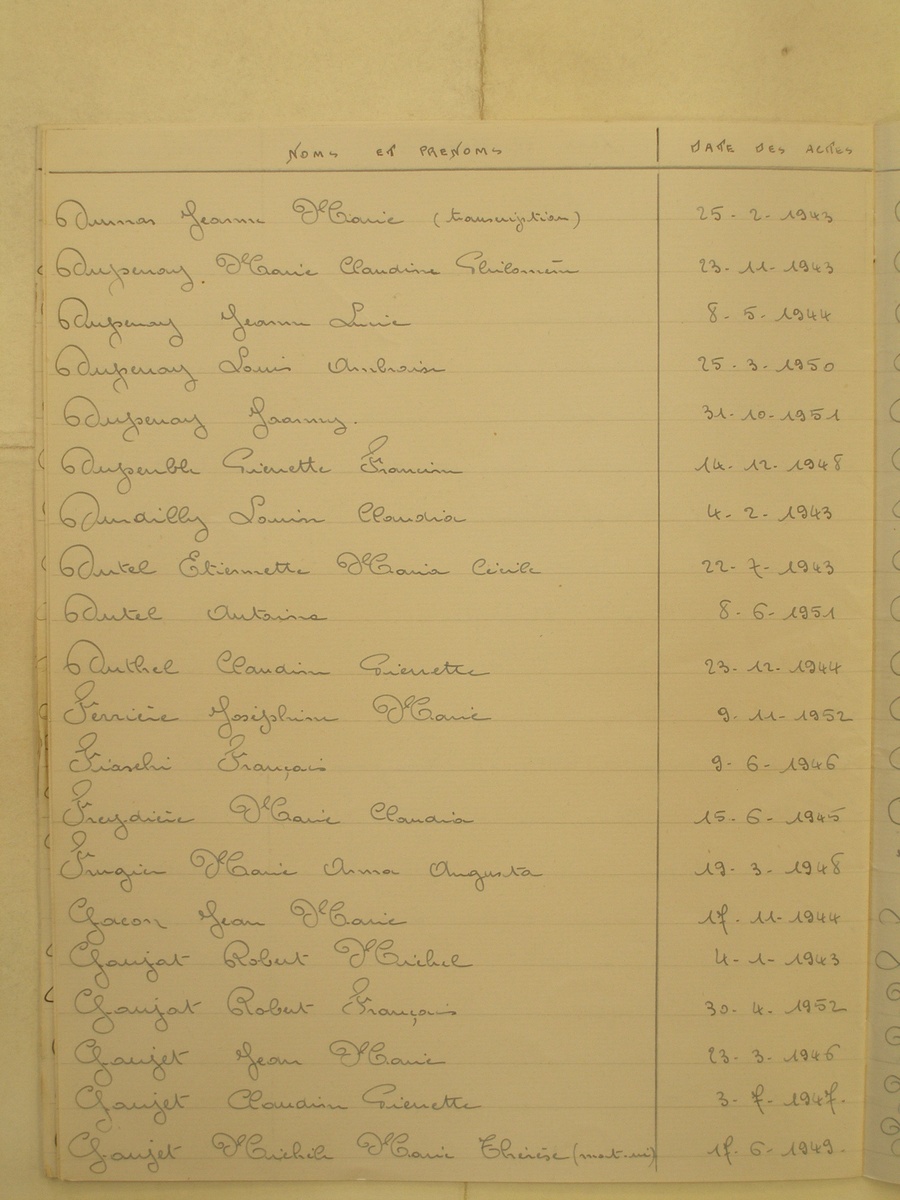 NOMS ET PRENOMS DATE DES ACTES
Dumas Jeanne Marie (transcription) 25-2-1943
Dupenay Marie Claudine Philomène 23-11-1943
Dupenay Jeanne Lucie 8-5-1944
Dupenay Louis Ambroise 25-3-1950
Dupenay Joanny. 31-10-1951
Dupeuble Pierrette Francine 14-12-1948
Durdilly Louise Claudia 4-2-1943
Dutel Etiennette Maria Cécile 22-7-1943
Dutel Antoine 8-6-1951
Duthel Claudine Pierrette 23-12-1944
Ferrière Joséphine Marie 9-11-1952
Fiaschi François 9-6-1946
Freydière Marie Claudia 15-6-1945
Frugier Marie Anna Augusta 19-3-1948
Gacon Jean Marie 17-11-1944
Goujat Robert Michel 4-1-1943
Goujat Robert François 30-4-1952
Goujet Jean Marie 23-3-1946
Goujet Claudine Pierrette 3-7-1947.
Goujet Michèle Marie Thérèse (mort-né) 17-6-1949.